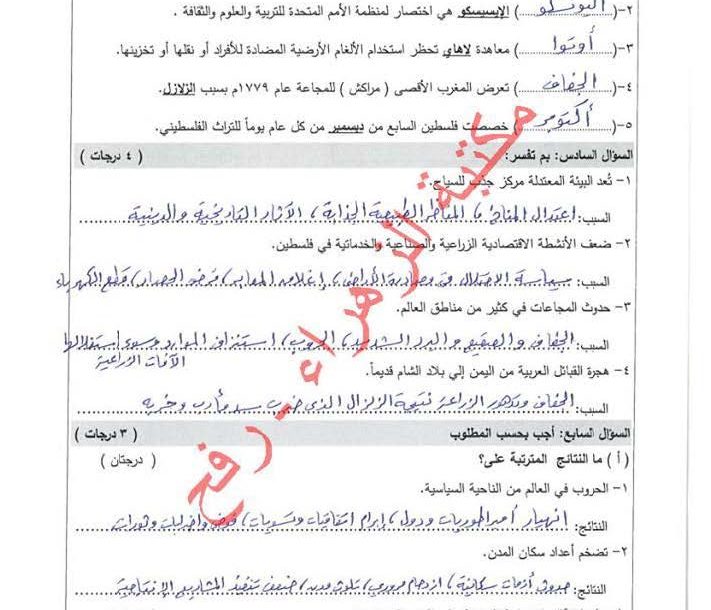 ٢-(اليونسكو) الإيسيسكو هي اختصار لمنظمة الأمم المتحدة للتربية والعلوم والثقافة .
٣-(أوتاوا) معاهدة لاهاي تحظر استخدام الألغام الأرضية المضادة للأفراد أو نقلها أو تخزينها.
٤-(الجفاف) تعرض المغرب الأقصى ( مراكش ) للمجاعة عام ١٧٧٩م بسبب الزلازل.
٥-(أكتوبر) خصصت فلسطين السابع من ديسمبر من كل عام يوماً للتراث الفلسطيني.
السؤال السادس: بم تفسر: ( ٤ درجات )
١- تُعد البيئة المعتدلة مركز جذب للسياح.
السبب: اعتدال المناخ ، المناظر الطبيعية الجذابة ، الآثار التاريخية والدينية
٢- ضعف الأنشطة الاقتصادية الزراعية والصناعية والخدماتية في فلسطين.
السبب: سياسة الاحتلال في مصادرة الأراضي ، إغلاق المعابر ، فرض الحصار ، قطع الكهرباء
٣- حدوث المجاعات في كثير من مناطق العالم.
السبب: الجفاف والصقيع والبرد الشديد ، الحروب ، استنزاف الموارد وسوء استغلالها
الآفات الزراعية
٤- هجرة القبائل العربية من اليمن إلى بلاد الشام قديماً.
السبب: الجفاف وتدهور الزراعة نتيجة الزلزال الذي ضرب سد مأرب وخربه
السؤال السابع: أجب بحسب المطلوب ( ٣ درجات )
( أ ) ما النتائج المترتبة على؟ ( درجتان )
١- الحروب في العالم من الناحية السياسية.
النتائج: انهيار امبراطوريات ودول ، إبرام اتفاقيات وتسويات ، فوضى واضرابات وثورات
٢- تضخم أعداد سكان المدن.
النتائج: حدوث أزمات سكانية ، ازدحام مروري ، تلوث مدن ، ضعف تنفيذ المشاريع الإنتاجية
مكتبة الزهراء - رفح